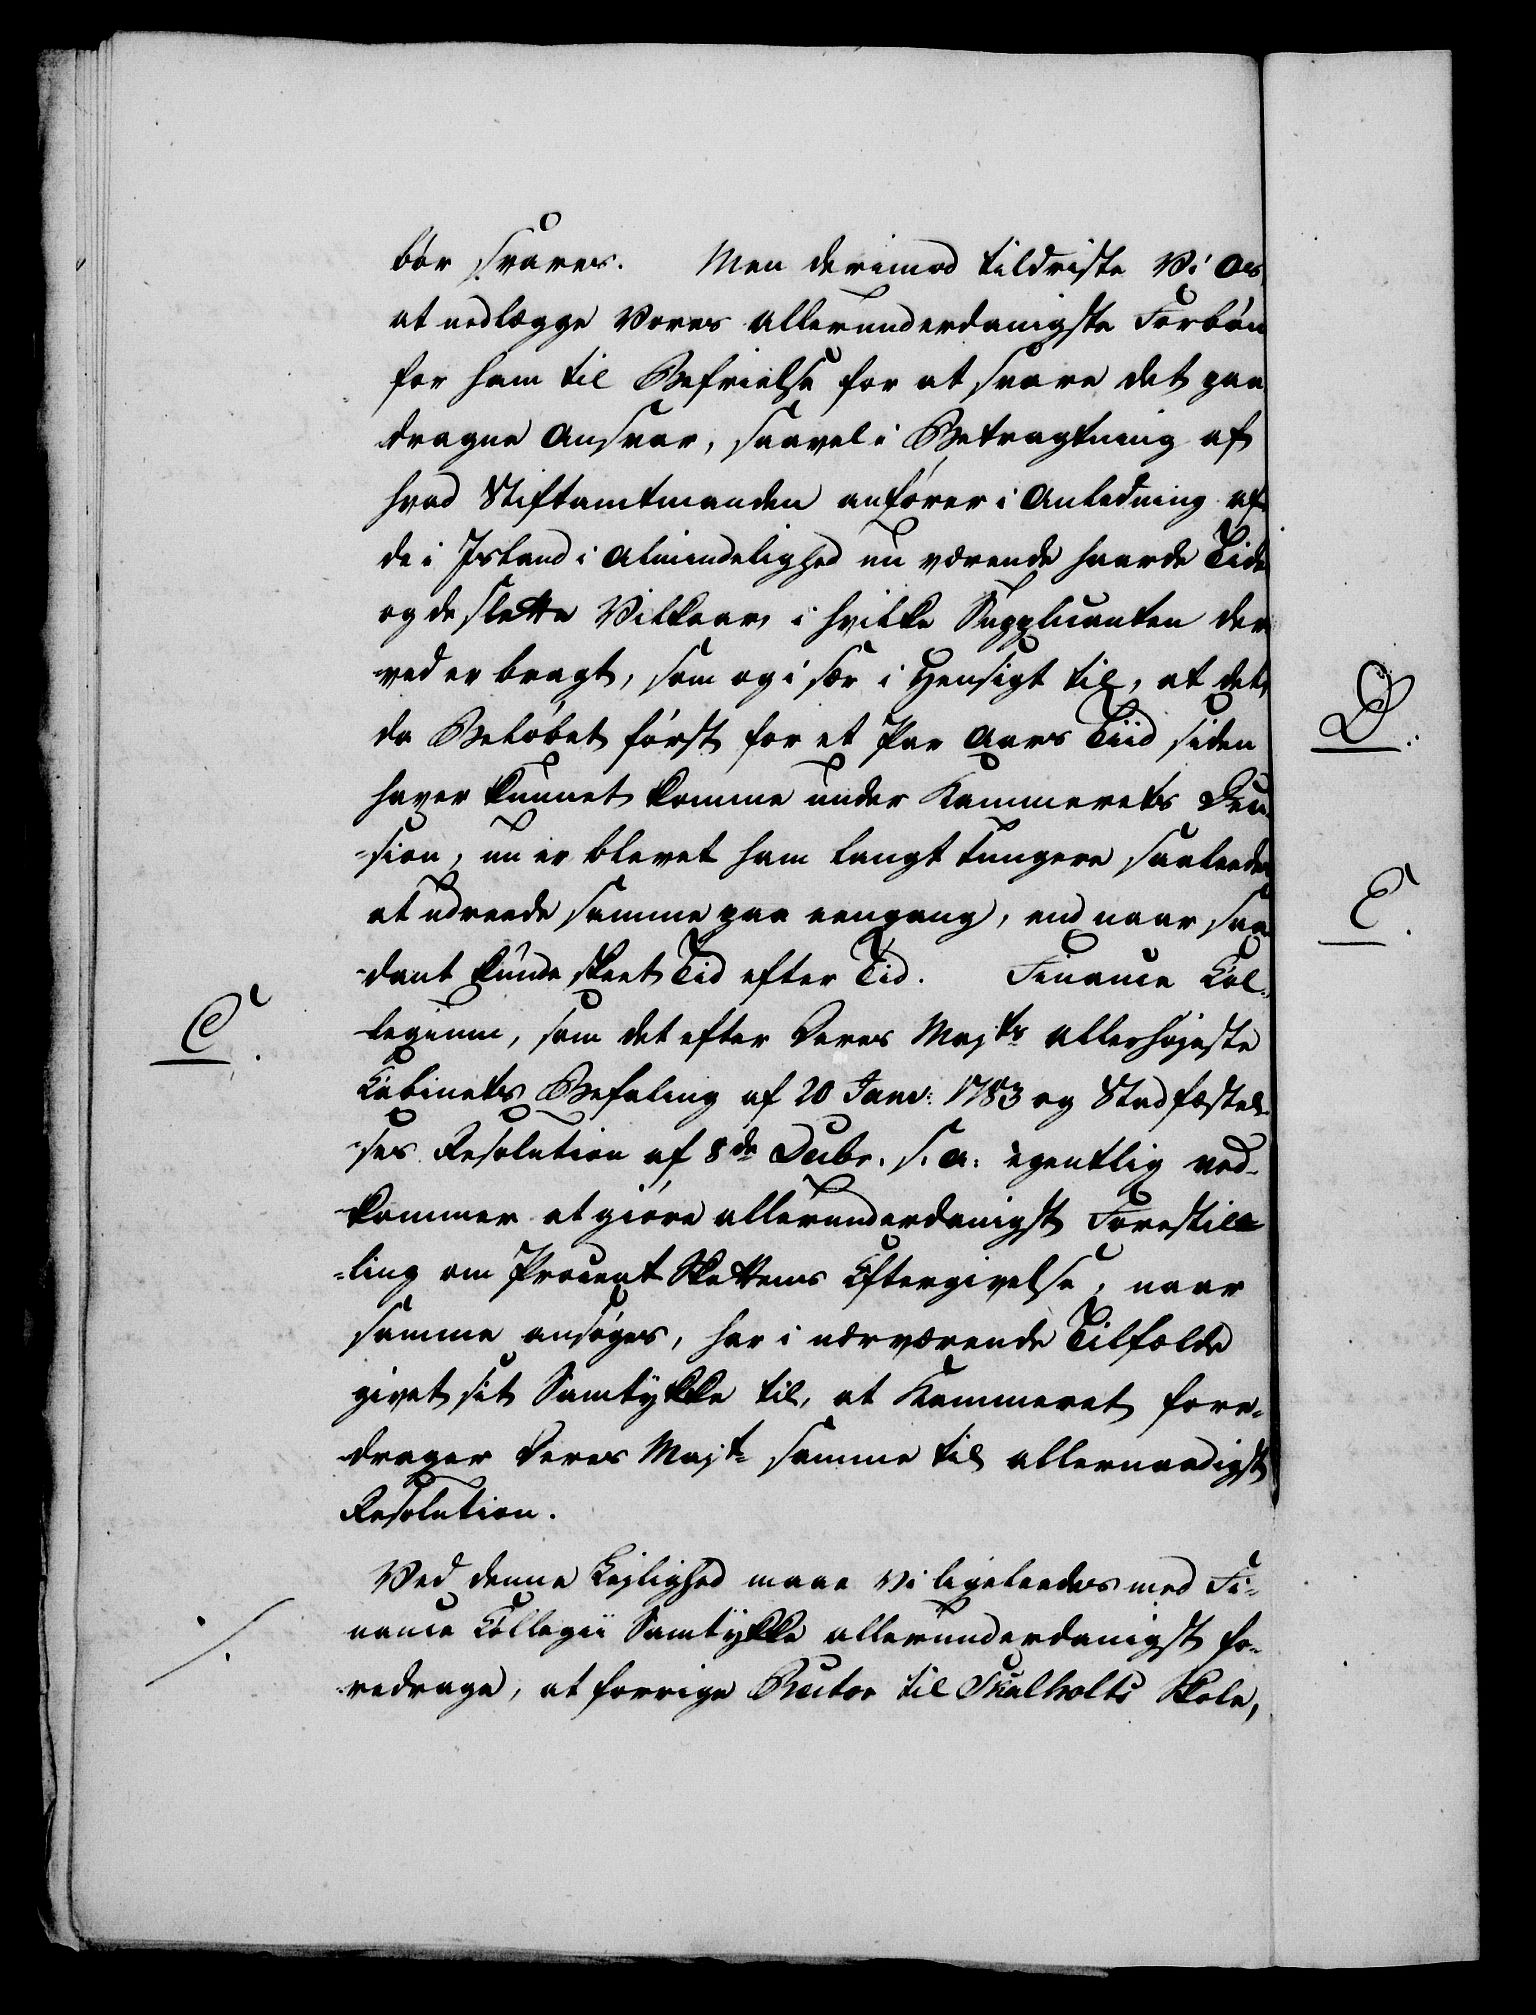 bør svares. Men derimod tildriste Vi Os,
at nedlægge Vores allerunderdanigste Forbøn
for ham til Befrielse for at svare det paa
dragne Ansvar, saavel i Betragtning af
hvad Stiftamtmanden anfører i Anledning af
de i Island i Almindelighed nu værende haarde Tide
og de slette Vilkaar, i hvilke Supplicanten der
ved er bragt, som og i sær i Hensigt til, at det,
da Beløbet først for et Par Aars Tiid siden
D.
haver kunnet komme under Kammerets Deci
-sion, nu er blevet ham langt tungere saaleedes
at udreede samme paa eengang, end naar saa
E.
-dant kunde skeet Tid efter Tid. Finance Col-
C.
legium, som det efter Deres Majts allerhøjeste
Cabinets Befaling af 20 Janv: 1783 og Stadfæstel-
-ses Resolution af 8de Decbr. s. a: egentlig ved-
kommer at giøre allerunderdanigst Forestil-
-ling om Procent Skattens Eftergivelse, naar
samme ansøges, har i nærværende Tilfælde
givet sit Samtykke til, at Kammeret fore-
drager Deres Majt= samme til allernaadigst
Resolution.
Ved denne Lejlighed maae vi ligeleedes med Fi-
nance Collegii Samtykke allerunderdanigst fo-
redrage, at forrige Rector til Skalholts Skole,